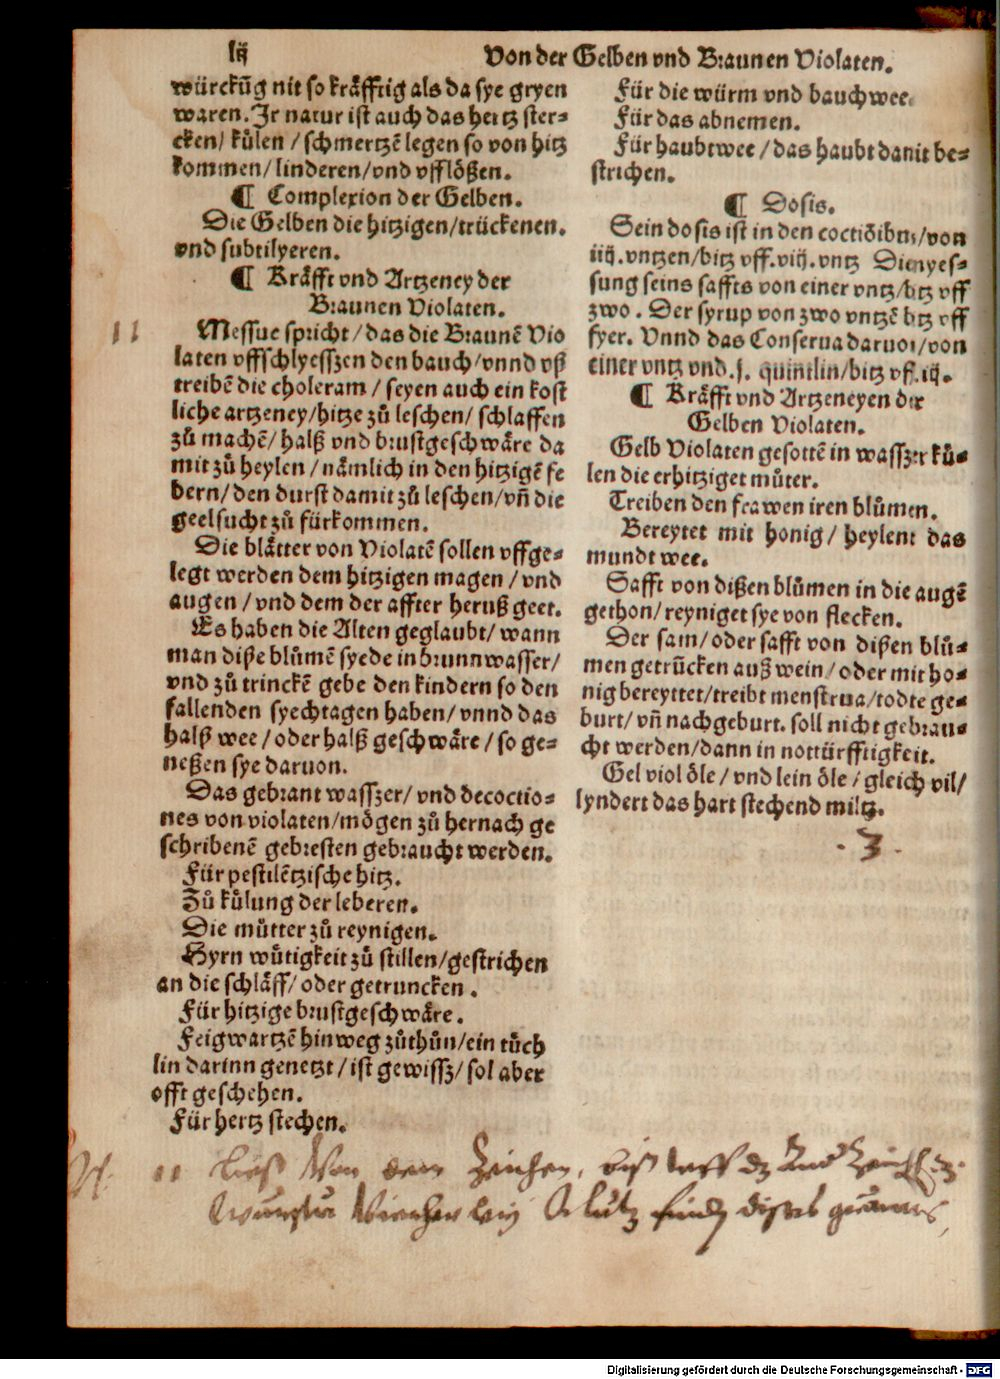 lij
Von der Gelben vnd Braunen Violaten.
würckūg nit so kräfftig als da sye gryen
waren. Ir natur ist auch das hertz ster⸗
cken/ külen / schmertzē legen so von hitz
kommen/ linderen/vnd vfflößen.
¶ Complexion der Gelben.
Die Gelben die hitzigen/trückenen.
vnd subtilyeren.
¶ Kräfft vnd Artzeney der
Braunen Violaten.
11 Messue spricht/das die Braunē Vio
laten vffschlyesszen den bauch/vnnd vß
treibē die choleram / seyen auch ein kost
liche artzeney/hitze zů leschen/ schlaffen
zů machē/ halß vnd brustgeschwäre da
mit zů heylen/nämlich in den hitzigē fe
bern/den durst damit zů leschen/vñ die
geelsucht zů fürkommen.
Die blätter von Violatē sollen vffge⸗
legt werden dem hitzigen magen / vnd
augen / vnd dem der affter heruß geet.
Es haben die Alten geglaubt/ wann
man diße blůmē syede in brunnwasser/
vnd zů trinckē gebe den kindern so den
fallenden syechtagen haben/ vnnd das
halß wee / oder halß geschwäre / so ge⸗
neßen sye daruon.
Das gebrant wasszer/ vnd decoctio⸗
nes von violaten/mögen zů hernach ge
schribenē gebresten gebraucht werden.
Für pestilētzische hitz.
Zů külung der leberen.
Die mütter zů reynigen.
Hyrn wütigkeit zů stillen/gestrichen
an die schläff/ oder getruncken.
Für hitzige brustgeschwäre.
Feigwartzē hinweg zůthůn/ein tůch
lin darinn genetzt / ist gewissz/ sol aber
offt geschehen.
Für hertz stechen.
Für die würm vnd bauchwee.
Für das abnemen.
Für haubtwee / das haubt damit be⸗
strichen.
¶ Dosis.
Sein dosis ist in den coctiōibus/von
iiij.vntzen/bitz vff.viij.vntz Die nyes⸗
sung seins saffts von einer vntz/bitz vff
zwo. Der syrup von zwo vntzē bitz vff
fyer. Vnnd das Conserua daruon/von
einer vntz vnd.j. quintlin/bitz vff.ij.
¶ Kräfft vnd Artzeneyen der
Gelben Violaten.
Gelb Violaten gesottē in wasszer kü⸗
len die erhitziget můter.
Treiben den frawen iren blůmen.
Bereytet mit honig/ heylent das
mundt wee.
Safft von dißen blůmen in die augē
gethon/ reyniget sye von flecken.
Der sam/ oder safft von dißen blů⸗
men getrücken auß wein/ oder mit ho⸗
nig bereyttet/treibt menstrua/todte ge⸗
burt/ vñ nachgeburt. soll nicht gebrau⸗
cht werden/dann in nottürfftigkeit.
Gel viol öle/ vnd lein öle / gleich vil/
lyndert das hart stechend miltz.
11 Von dem Zeichen,
Digitalisierung gefördert durch die Deutsche Forschungsgemeinschaft - DFG